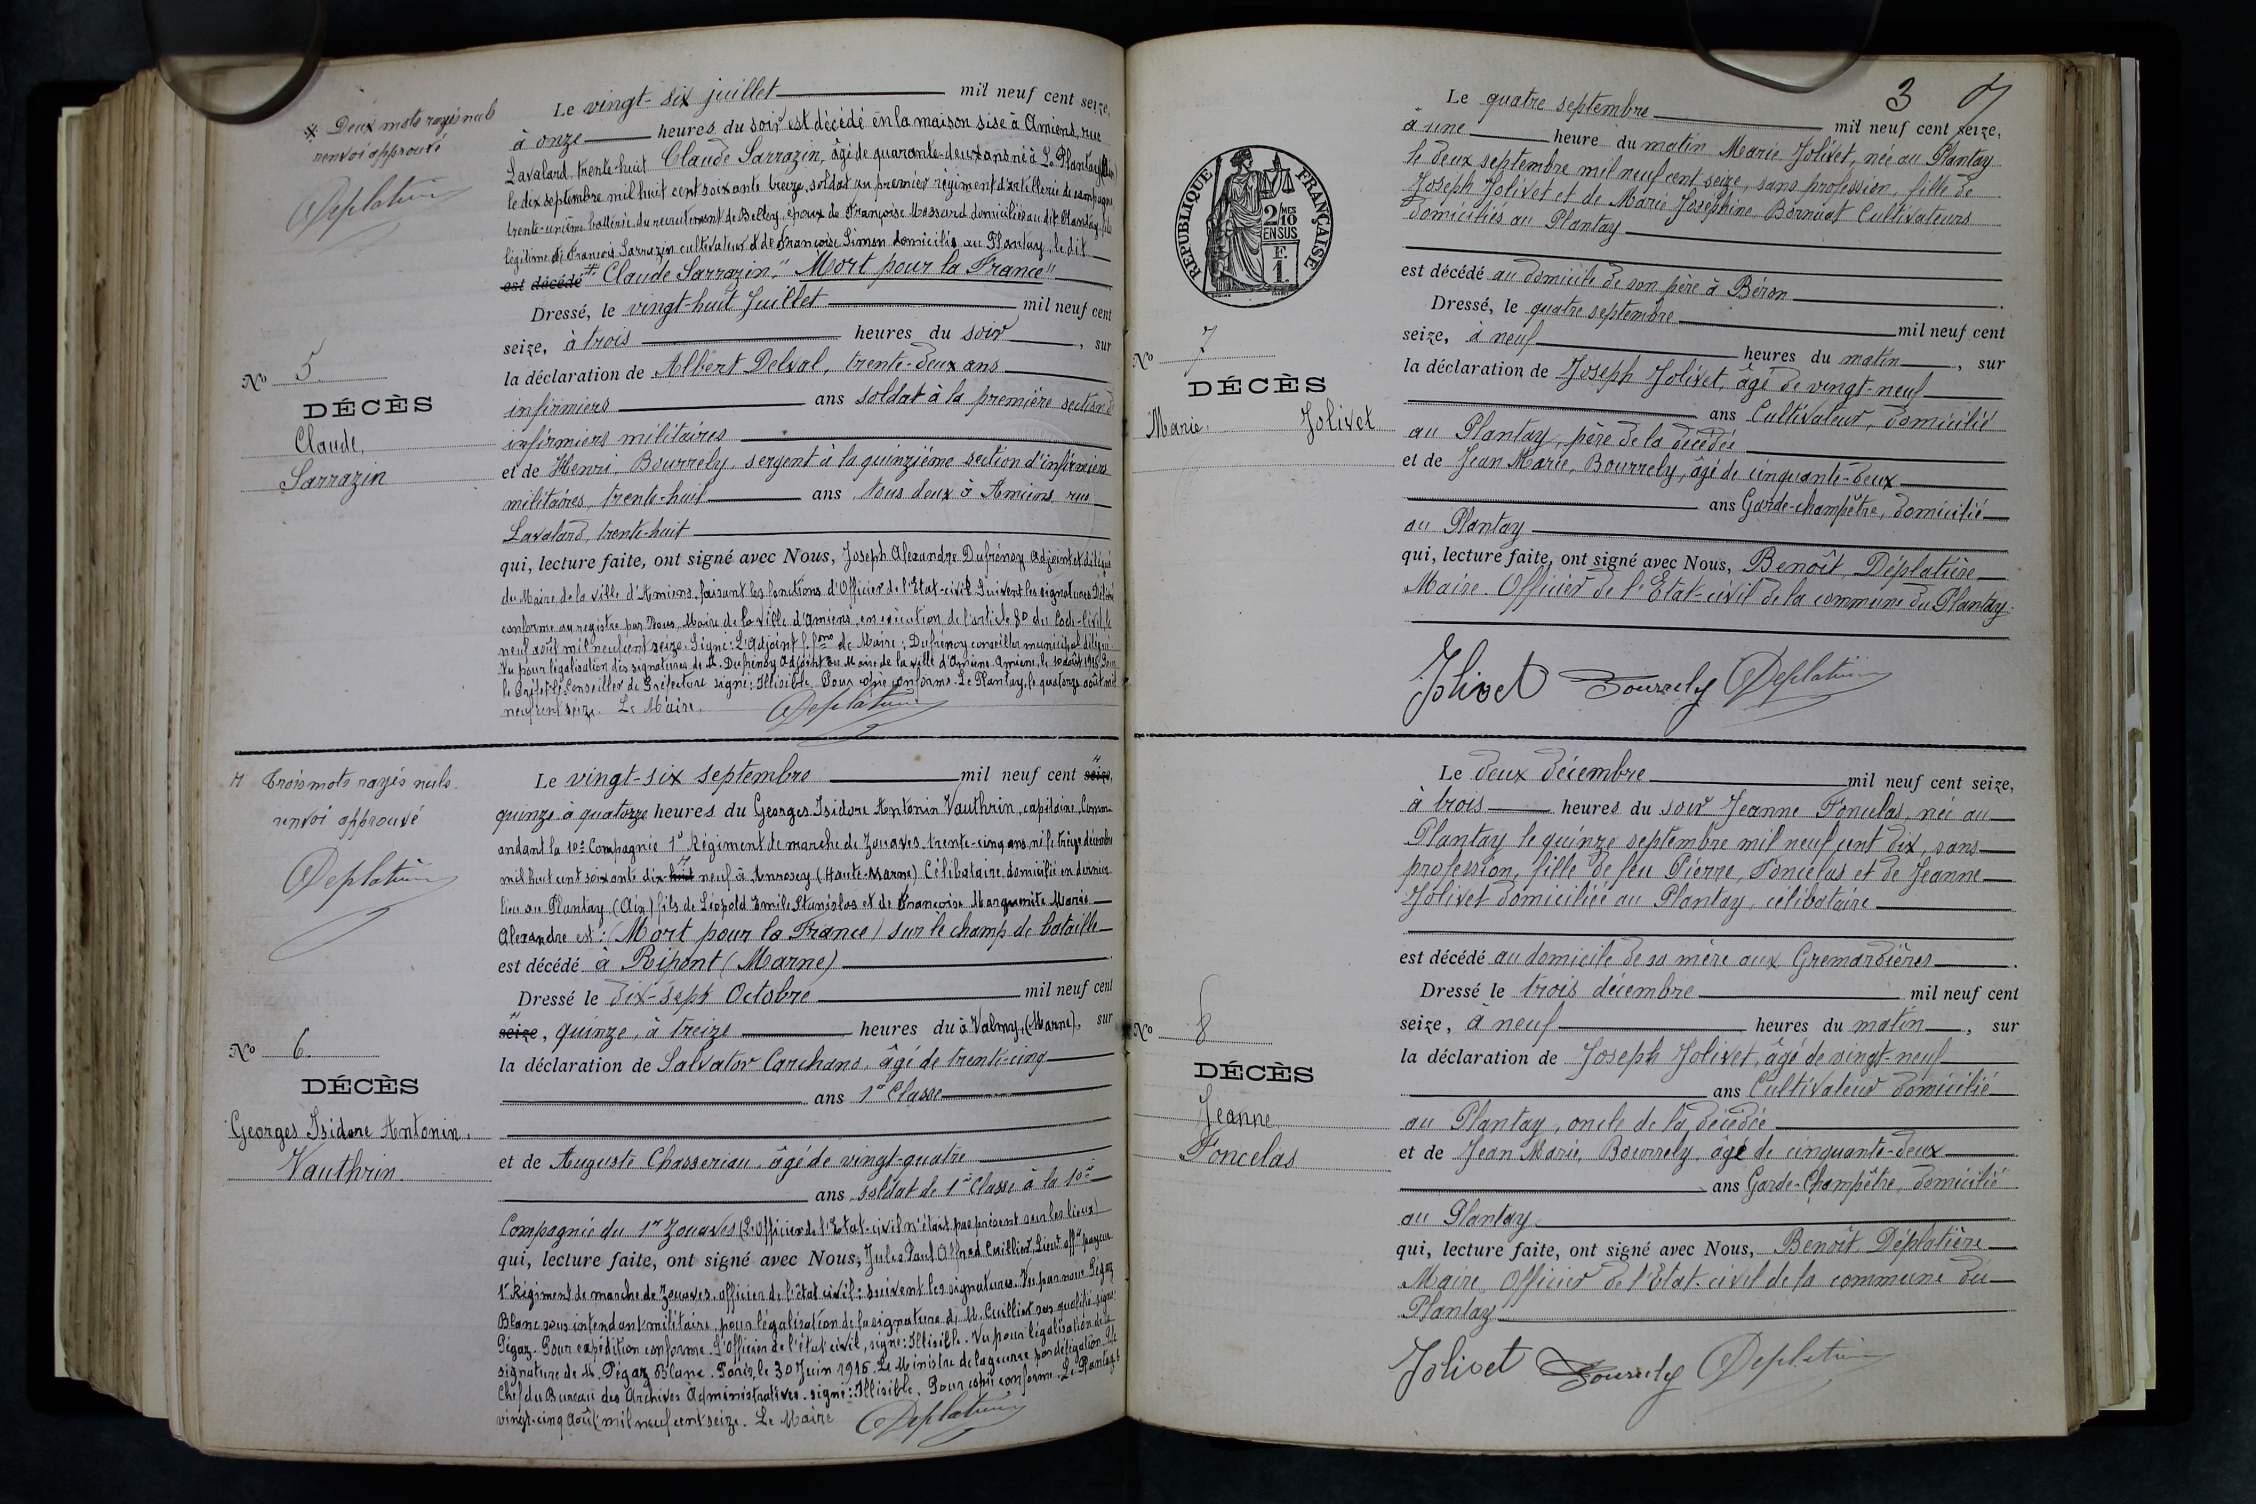 ※ Deux mots rayés nuls
renvoi approuvé
Déplatière
Nº 5.
DÉCÈS
Claude,
Sarrazin
Le vingt-six juillet mil neuf cent seize,
à onze heures du soir est décédé en la maison sise à Amiens, rue
Lavalard trente-huit Claude Sarrazin, âgé de quarante-deux ans né à Le Plantay (Ain)
le dix septembre mil huit cent soixante treize, soldat au premier régiment d'artillerie de campagne
trente-unième batterie, du recrutement de Belley, époux de Françoise Mossard domiciliés au dit Plantay, fils
légitime de François Sarrazin cultivateur et de Françoise Simon domiciliés au Plantay, le dit
est décédé # Claude Sarrazin, " Mort pour la France "
Dressé, le vingt-huit Juillet mil neuf cent
seize, à trois heures du soir, sur
la déclaration de Albert Delval, trente-deux ans
infirmiers ans soldat à la première section d'
infirmiers militaires
et de Henri Bourrely, sergent à la quinzième section d'infirmiers
militaires, trente-huit ans, tous deux à Amiens, rue
Lavalard, trente-huit
qui, lecture faite, ont signé avec Nous, Joseph Alexandre Dufrénoy Adjoint et délégué
du Maire de la ville d'Amiens, faisant les fonctions d'Officier de l'Etat-civil. Suivent les signatures. Délivré
conforme au registre par Nous, Maire de la ville d'Amiens, en exécution de l'article 80 du Code-Civil, le
neuf août mil neuf cent seize. Signé: L'Adjoint f. fons de Maire: Dufrénoy conseiller municipal délégué.
Vu pour légalisation des signatures de M. Dufrénoy Adjoint au Maire de la ville d'Amiens. Amiens, le 10 août 1916 Pour
le Préfet le Conseiller de Préfecture signé: Illisible. Pour copie conforme. Le Plantay, le quatorze août mil
neuf cent seize. Le Maire.
Déplatière
# Trois mots rayés nuls.
renvoi approuvé
Déplatière
Nº 6.
DÉCÈS
Georges Isidore Antonin.
Vauthrin.
Le vingt-six septembre mil neuf cent seize,
quinze à quatorze heures du Georges Isidore Antonin Vauthrin, capitaine, Comm-
andant la 10e Compagnie 1er Régiment de marche de Zouaves, trente-cinq ans, né le treize décembre
mil huit cent soixante dix-huit neuf à Anrosey (Haute-Marne) Célibataire, domicilié en dernier
lieu au Plantay (Ain) fils de Léopold Emile Stanislas et de Françoise Marguerite Marie
Alexandre est: (Mort pour la France) sur le champ de bataille
est décédé à Ripont (Marne)
Dressé le dix-sept Octobre mil neuf cent
seize, quinze, à treize heures du à Valmy, (Marne), sur
la déclaration de Salvator Carchano, âgé de trente-cinq
ans 1re Classe
et de Auguste Chasseriau, âgé de vingt-quatre
ans, soldat de 1re Classe à la 10e
Compagnie du 1er Zouaves (L'officier de l'Etat-civil n'était pas présent sur les lieux)
qui, lecture faite, ont signé avec Nous, Jules Paul Alfred Cuillier, Lieut offer payeur
1er Régiment de marche de Zouaves, officier de l'état civil: suivent les signatures. Vu par nous Pégaz
Blanc sous intendant militaire, pour légalisation de la signature de M. Cuillier sus qualifié signé:
Pégaz. Pour expédition conforme. L'Officier de l'état civil, signé: Illisible. Vu pour légalisation de la
signature de M. Pégaz Blanc. Paris, le 30 Juin 1916. Le Ministre de la guerre par délégation. Le
Chef du Bureau des Archives Administratives. signé: Illisible. Pour copie conforme. Le Plantay, le
vingt-cinq Août mil neuf cent seize. Le Maire
Déplatière
3
RÉPUBLIQUE FRANÇAISE
2 MES
10
EN SUS
F.
1
Nº 7
DÉCÈS
Marie. Jolivet
Le quatre septembre mil neuf cent seize,
à une heure du matin Marie Jolivet, née au Plantay
le deux septembre mil neuf cent seize, sans profession, fille de
Joseph Jolivet et de Marie Joséphine Bornuat Cultivateurs
domiciliés au Plantay
est décédé au domicile de son père à Béron
Dressé, le quatre septembre mil neuf cent
seize, à neuf heures du matin, sur
la déclaration de Joseph Jolivet, âgé de vingt-neuf
ans Cultivateur, domicilié
au Plantay, père de la décédée
et de Jean Marie, Bourrely, âgé de cinquante-deux
ans Garde-champêtre, domicilié
au Plantay
qui, lecture faite, ont signé avec Nous, Benoît, Déplatière
Maire. Officier de l'Etat-civil de la commune du Plantay.
Jolivet Bourrely Déplatière
Nº 8
DÉCÈS
Jeanne.
Foncelas
Le deux décembre mil neuf cent seize,
à trois heures du soir Jeanne Foncelas, née au
Plantay le quinze septembre mil neuf cent dix, sans
profession, fille de feu Pierre, Foncelas et de Jeanne
Jolivet domiciliée au Plantay, célibataire
est décédé au domicile de sa mère aux Gremardières
Dressé le trois décembre mil neuf cent
seize, à neuf heures du matin, sur
la déclaration de Joseph Jolivet, âgé de vingt-neuf
ans Cultivateur domicilié
au Plantay, oncle de la décédée
et de Jean Marie, Bourrely, âgé de cinquante-deux
ans Garde-Champêtre, domicilié
au Plantay
qui, lecture faite, ont signé avec Nous, Benoît Déplatière
Maire, Officier de l'Etat-civil de la commune du
Plantay
Jolivet Bourrely Déplatière